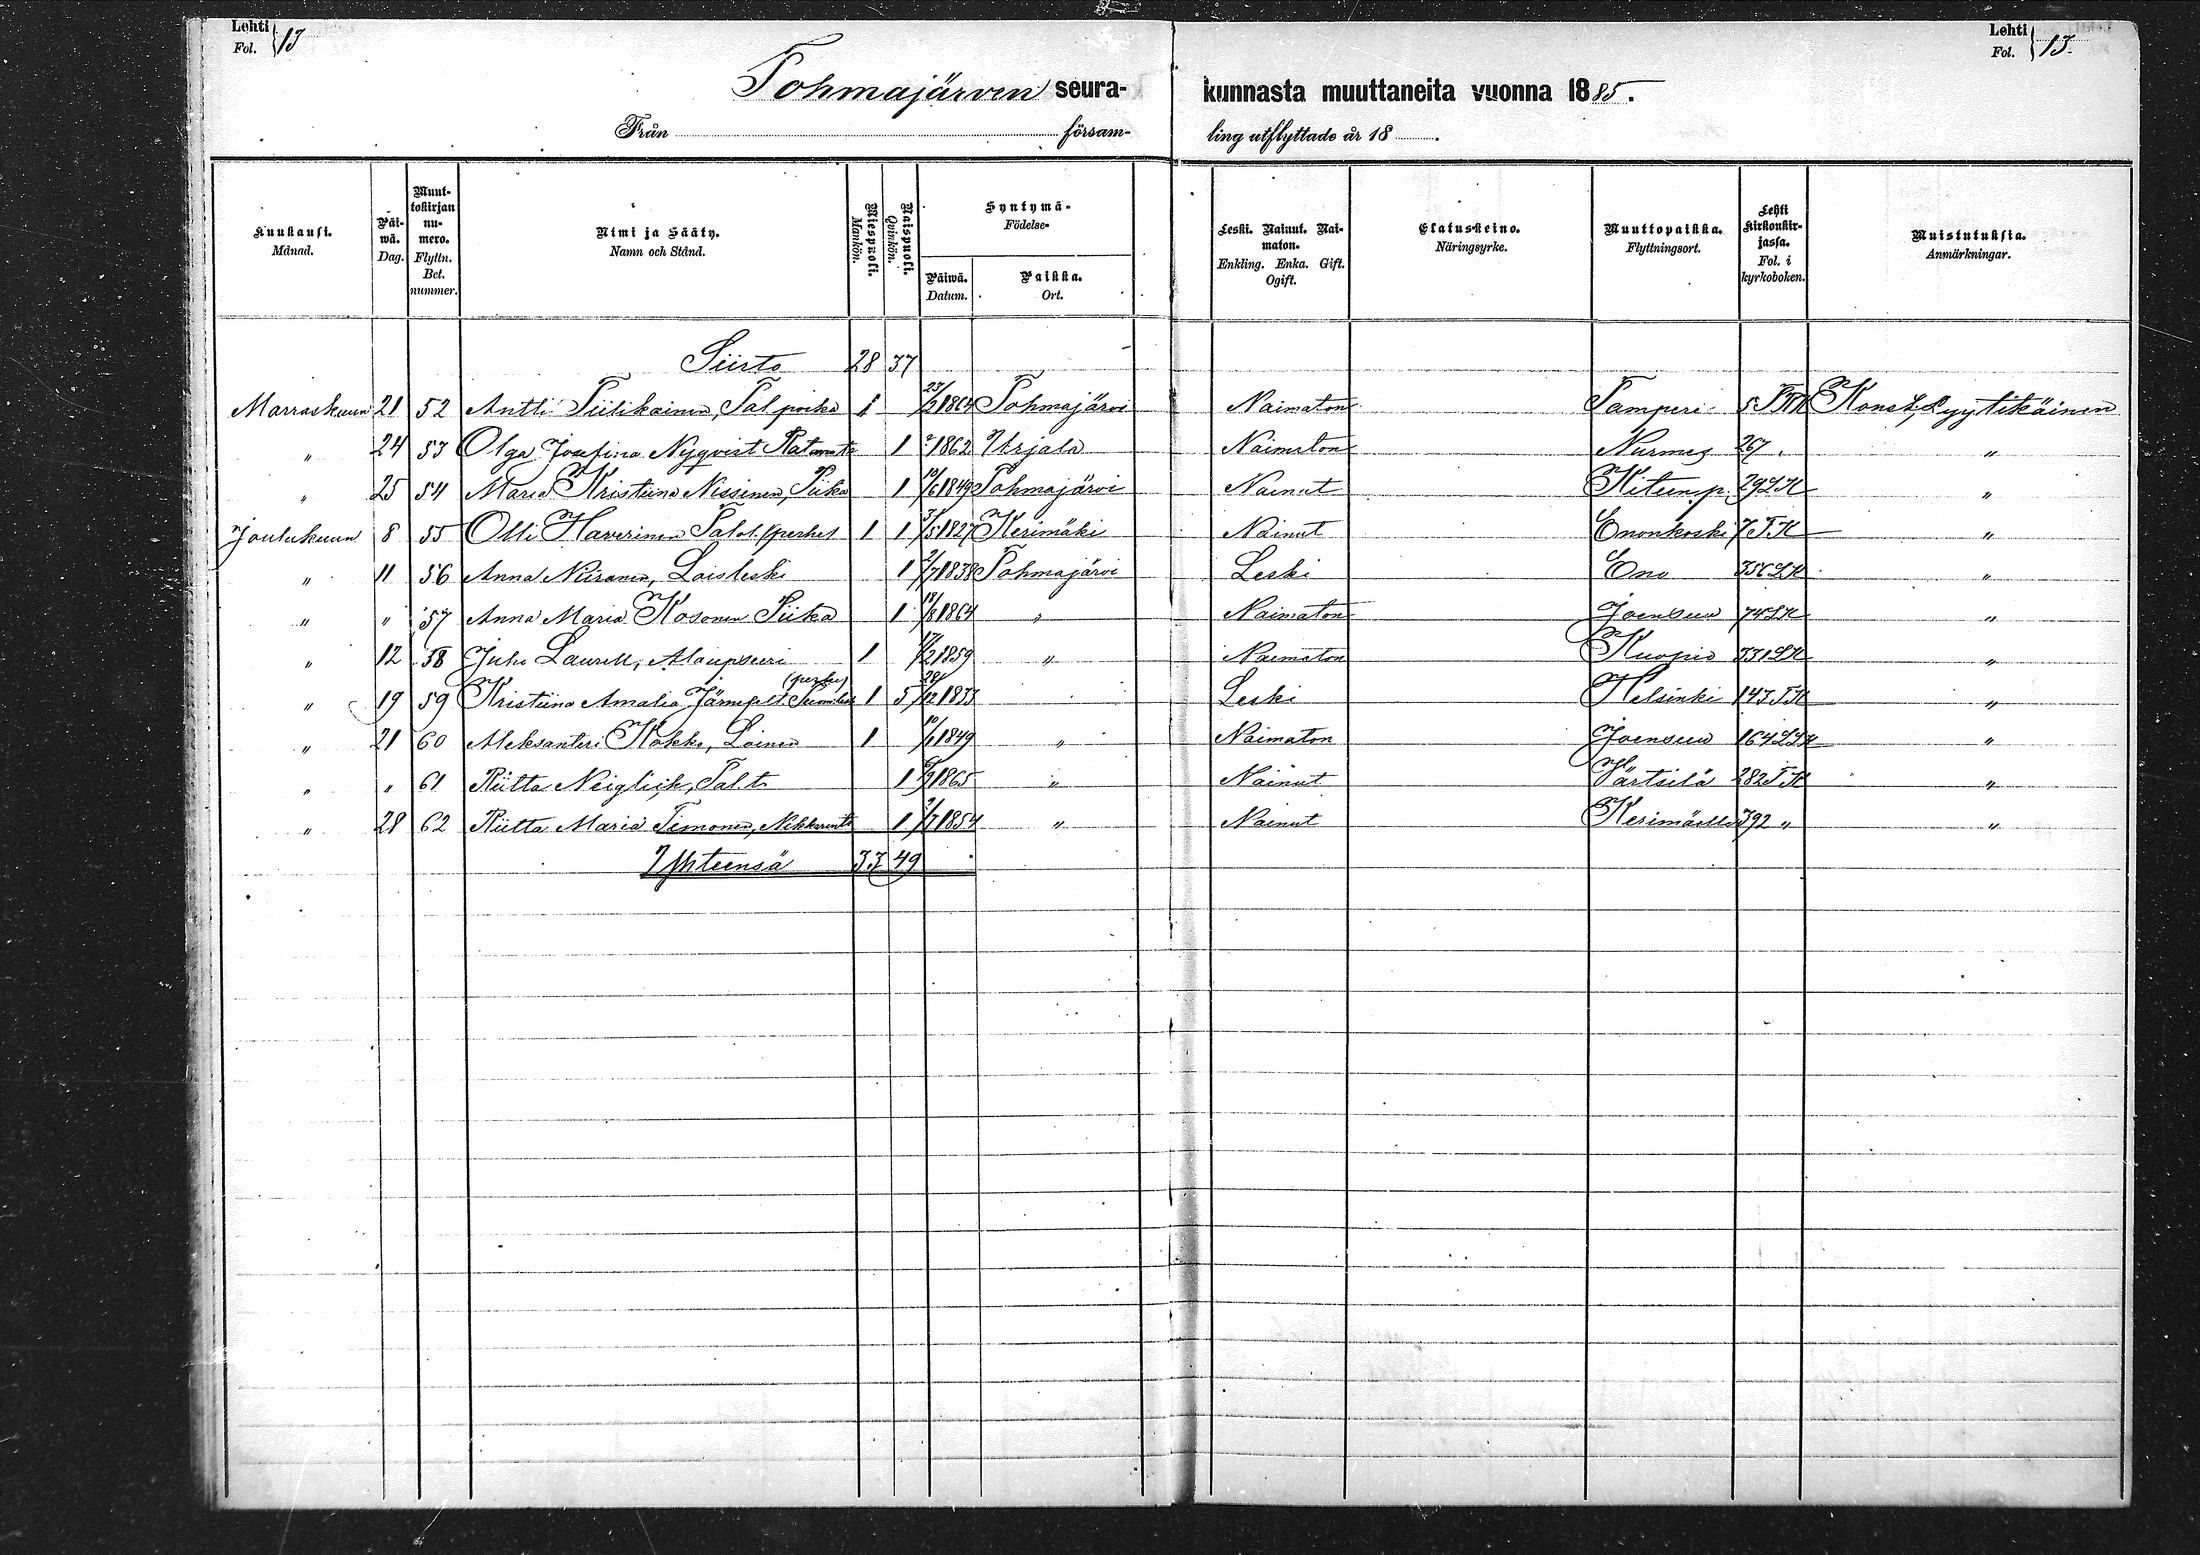 Lehti Fol. 13
Lehti Fol. 13.
Tohmajärven seurakunnasta muuttaneita vuonna 1885.
Från försam-ling utflyttade år 18 .
Kuukausi. Månad.
Päiwä. Dag.
Muuttokirjan numero. Flyttn. Bet. nummer.
Nimi ja Sääty. Namn och Stånd.
Miespuoli. Mankön.
Naispuoli. Qvinkön.
Syntymä- Födelse-
Päiwä. Datum.
Paikka. Ort.
Leski. Nainut. Naimaton. Enkling. Enka. Gift. Ogift.
Elatuskeino. Näringsyrke.
Muuttopaikka. Flyttningsort.
Lehti kirkonkirjassa. Fol. i kyrkoboken.
Muistutuksia. Anmärkningar.
Siirto 28 37
Marraskuun 21 52 Antti Piilikainen, Tal. poika 1 23/2 1864 Tohmajärvi Naimaton Tamperi 5 Konst. Lyytikäinen
" 24 53 Olga Josefina Nyqvist 1 ? 1862 Urjala Naimaton Nurmes 267 "
" 25 54 Maria Kristiina Nissinen, Piika 1 1849 Tohmajärvi Nainut 29 LK "
Joulukuun 8 55 Olli Haverinen perhe 1 1 1827 Kerimäki Nainut Enonkoski 7 TK "
" 11 56 Anna Niiranen, Loisleski 1 2/7 1838 Tohmajärvi Leski Eno 356 LK "
" " 57 Anna Maria Kosonen Piika 1 18/8 1864 " Naimaton Joensuu 74 LK "
" 12 58 Juho Laurell, 1 17/2 1859 " Naimaton Kuopio 331 LK "
" 19 59 Kristiina Amalia (perhe) 1 5 28/12 1833 Leski Helsinki 143 TK "
" 21 60 Aleksanteri Kokko, Loinen 1 1849 " Naimaton Joensuu 164 "
" " 61 Riitta Neiglick, Tal. t. 1 1865 " Nainut Värtsilä 282 TK "
" 28 62 Riitta Maria Timonen, 1 1854 " Nainut Kerimäelle 392 " "
Yhteensä 33 49